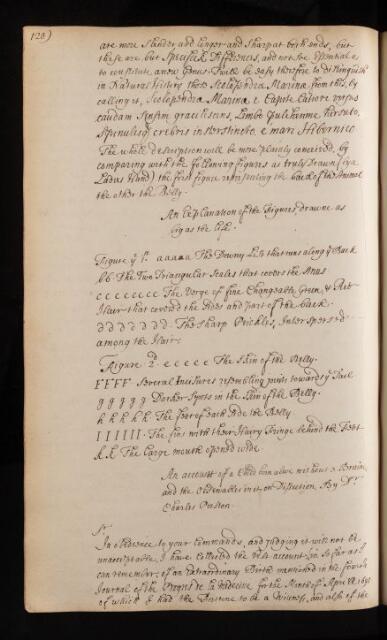 128)
are more slender and longer and sharp at both ends, but
these are but Specifick Differences, and not so Essential as
to constitute a new Genus. Twill be easy therefore to distinguish
in Naturall History those Scolopendra Marina from this, by
calling it, Scolopendra Marina e Capite Latiore versus
caudam sensim gracilescens, Limbo Hirsuto,
Spinulisq crebris interstinctus e mari Hibernico
The whole description will be more plainly conceived, by
comparing with the following figures as truly drawn (by a
Ladys Hand) the first figure representing the back of the Animal
the other the Belly.
An Explanation of the Figures, drawne as
big as the life.
Figure ye 1st. aaaaa The Downy List that runs along ye Back
bb The Two Triangular Scales that covers the Anus
ccccccc The Verge of fine Changeable Green & Red
Hair that coverd the sides and part of the back.
ddddddd The sharp Prickles, Interspersed
among the Hair.
Figure 2d. eeeee The Skin of the Belly.
FFFF Several Incisures resembling joints towards ye Tail
ggggg Darker spots in the Skin of the Belly.
hhhhh The part of each side the Belly
IIIIII The fins with their Hairy Fringe behind the Feet
k.k The Large mouth opend wide.
An account of a Child born alive without a Brain,
and the Observables in it on Dissection. By Dr
Charles Preston.
Sr.
In obedience to your Commands, and judging it will not be
unacceptable, I have collected the best account (in so far as I
can remember) of an Extraordinary Birth mentiond in the
Journal of the Progres de la Medecine for the Month of April
of which I had the Fortune to be a Witness, and also of the